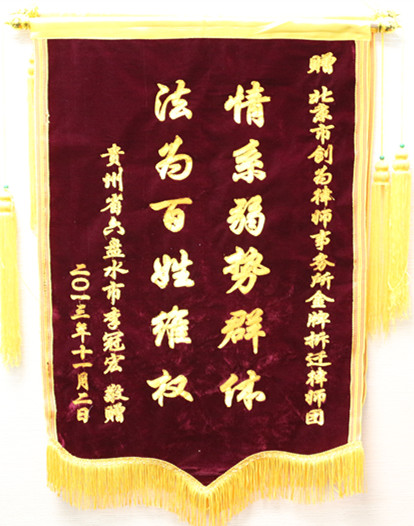 赠 北京市创为律师事务所金牌拆迁律师团
情系弱势群体
法为百姓维权
贵州省六盘水市李冠宏 敬赠
二〇一三年十一月二日